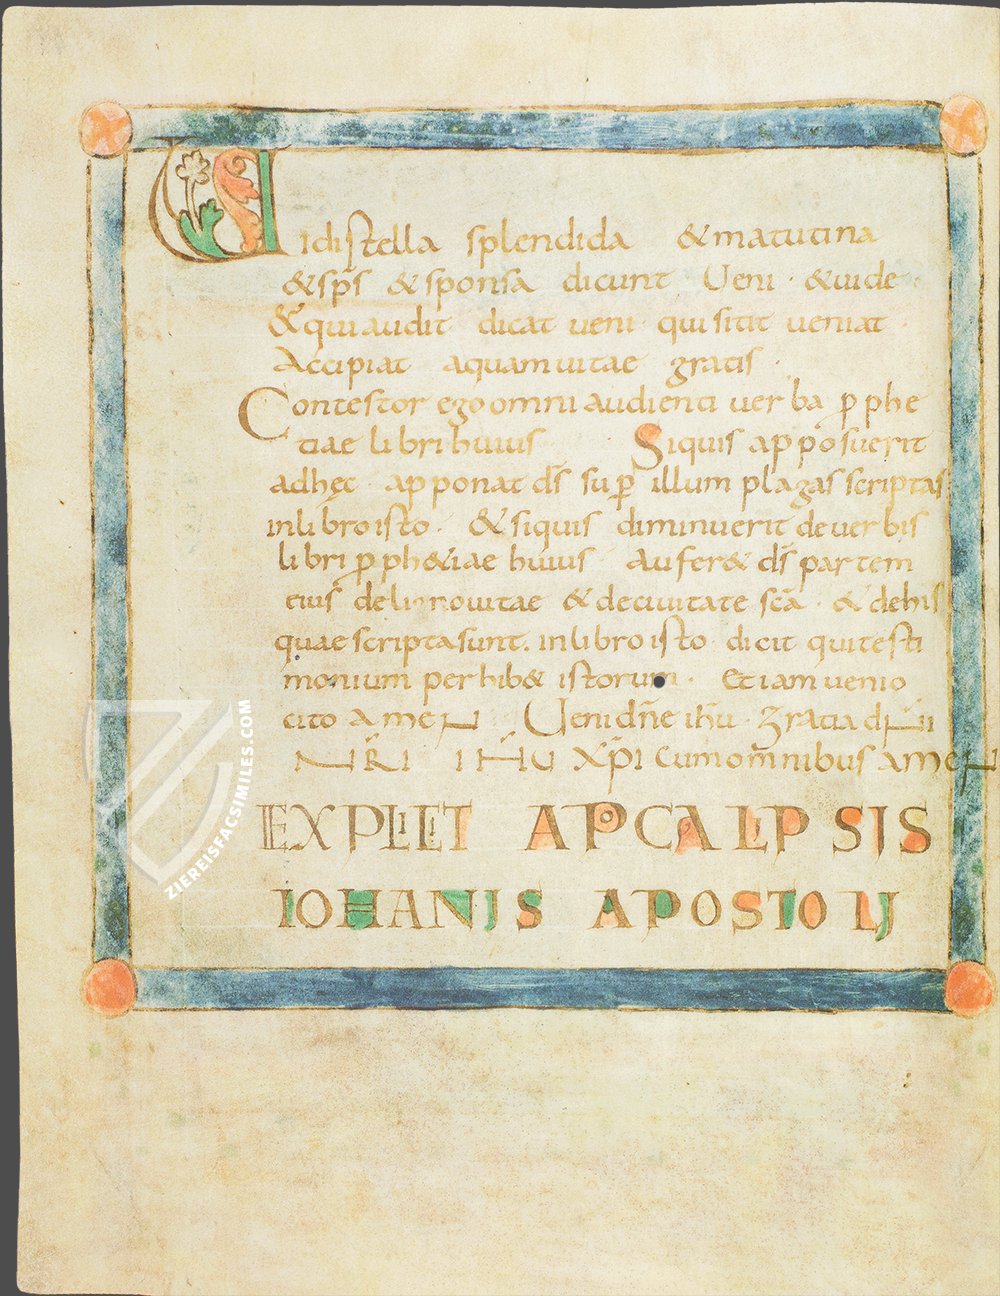 Uidistella splendida &matutina
&sp̄s &sponsa dicunt Ueni · &uide
&quiaudit dicat ueni· quisitit ueniat·
Accipiat aquamuitae gratis·
Contestor egoomniaudienti uerba p̄phe
tiae librihuius Siquis apposuerit
adhęc· apponat d̄s sup̄ illum plagas scriptas
inlibroisto· &siquis diminuerit deuerbis
libri p̄ph&iae huius Aufer& d̄s partem
eius delignouitae &deciuitate sc̄a· &dehis
quaescriptasunt. inlibroisto· dicit quitesti
monium perhib& istorum· Etiamuenio
cito AmeN Uenidn̄e ih̄u· Gratia dN̄I
NR̄I IH̄U XP̄I Cumomnibus AmeN
EXPLICIT APOCALIPSIS
IOHANIS APOSTOLI
ZIEREISFACSIMILES.COM